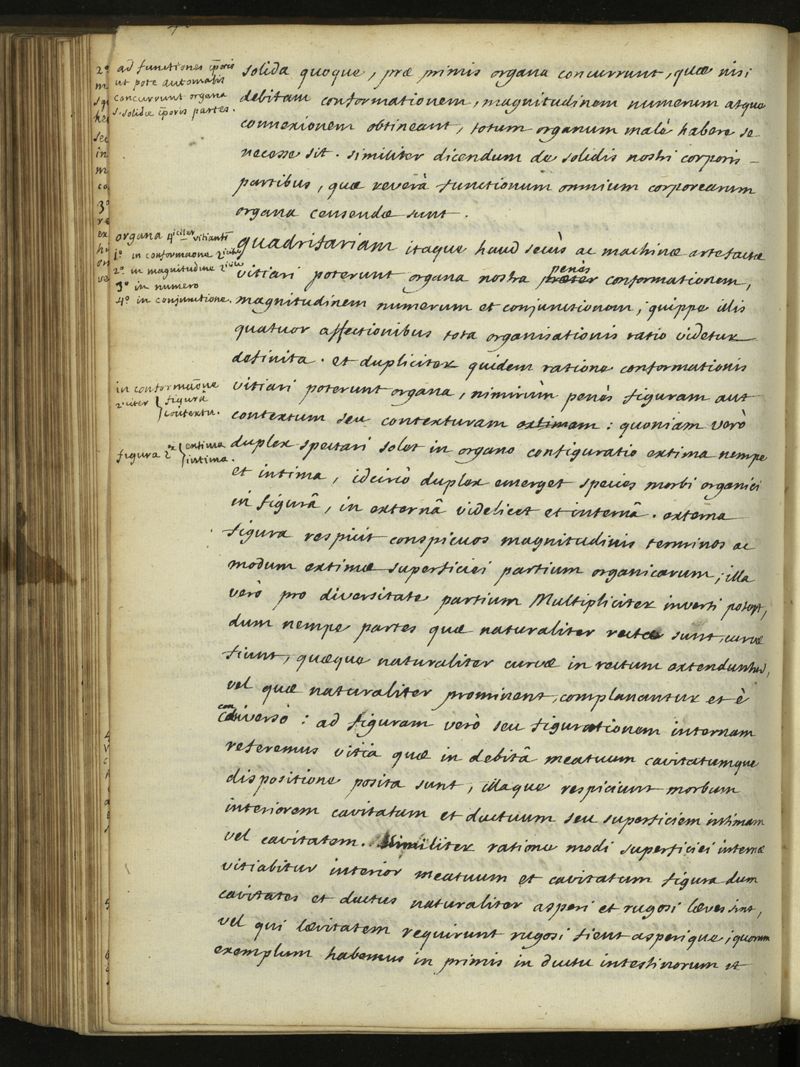 ad functiones cporis
ut pote automatis
concurrunt organa
s. solidæ cporis partes.
solida quoque, præ primis organa concurrunt, quæ nisi
debitam conformationem, magnitudinem numerum atque
connexionem obtineant, totum organum malè habere se
necesse sit. similiter dicendum de solidis nostri corporis
partibus, quæ reverà functionum omnium corporearum
organa censendæ sunt.
organa 4citer vitiantr
1° in conformaone 2citer
2° in magnitudine 2citer
3° in numero
4° in conjunctione.
quadrifariam itaque haud secùs ac machinæ artefactæ
vitiari poterunt organa nostra penès præter conformationem,
magnitudinem numerum et conjunctionem; quippe illis
quatuor affectionibus tota organisationis ratio videtur
definita. et dupliciter quidem ratione conformationis
in conformaone
2citer { figura
contextu.
vitiari poterunt organa, nimirùm penès figuram aut
contextum seu contexturam extimam: quoniam verò
figura 2x { extima
intima.
duplex spectari solet in organo configuratio extima nempe
et intima, idcircò duplex emerget species morbi organici
in figurâ, in externâ videlicet et internâ. externa
figura respicit conspicuos magnitudinis terminos ac
modum extimæ superficiei partium organicarum; illa
verò pro diversitate partium Multipliciter inverti potest,
dum nempe partes quæ naturaliter rectæ sunt, curvæ
fiunt, quæque naturaliter curvæ in rectum extenduntur,
vel quæ naturaliter prominent, complanantur et è
conversò: ad figuram verò seu figurationem internam
referemus vitia quæ in debitâ meatuum cavitatumque
dispositione posita sunt, illaque respiciunt morbum
interiorem cavitatum et ductuum seu superficiem intimam
vel cavitatem. Similiter ratione modi superficiei internæ
vitiabitur interior meatuum et cavitatum figura dum
cavitates et ductus naturaliter asperi et rugosi læves sint,
vel qui lævitatem requirunt rugosi fient asperique; quorum
exemplum habemus in primis in ductu intestinorum et